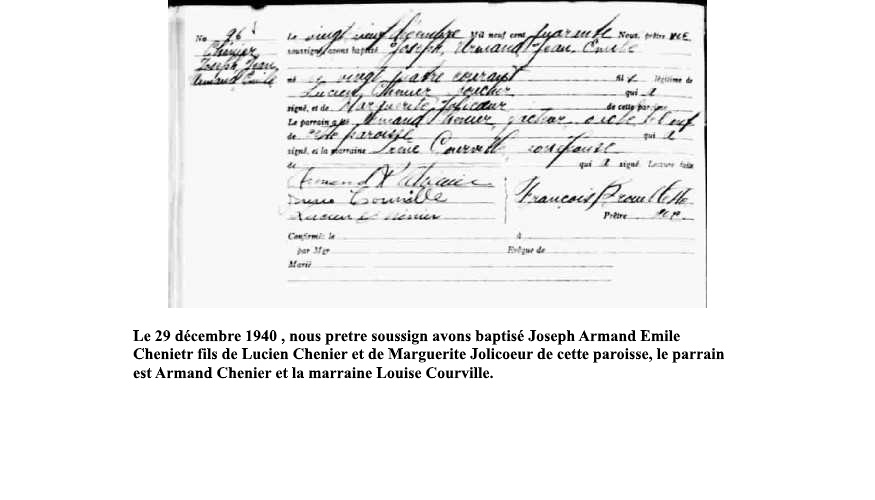 No 96
Chénier
Joseph, Jean
Armand Emile
Le vingt neuf décembre mil neuf cent quarante Nous, prêtre
soussigné avons baptisé Joseph, Armand, Jean, Emile
né le vingt quatre courant fils légitime de
Lucien Chenier qui a
signé, et de Marguerite Jolicoeur de cette paroisse
Le parrain a été Armand Chenier
de cette paroisse qui a
signé, et la marraine Courville, son épouse
de qui a signé. Lecture faite
Armand
Courville
Lucien Chénier
François
Prêtre
Confirmé le à
par Mgr Evêque de
Marié
Le 29 décembre 1940 , nous pretre soussign avons baptisé Joseph Armand Emile
Chenietr fils de Lucien Chenier et de Marguerite Jolicoeur de cette paroisse, le parrain
est Armand Chenier et la marraine Louise Courville.